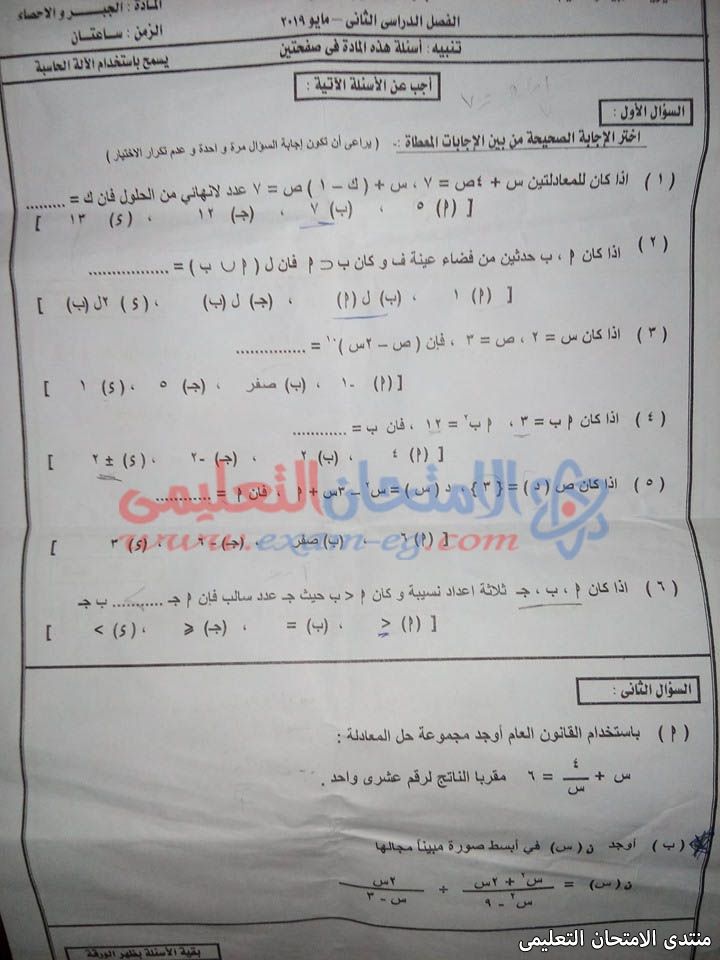 المادة : الجبر و الاحصاء
الفصل الدراسى الثانى – مايو ٢٠١٩
الزمن : ساعتان
تنبيه : أسئلة هذه المادة فى صفحتين
يسمح باستخدام الألة الحاسبة
أجب عن الأسئلة الآتية :
السؤال الأول :
اختر الإجابة الصحيحة من بين الإجابات المعطاة :- ( يراعى أن تكون إجابة السؤال مرة و احدة و عدم تكرار الاختيار )
( ١ ) اذا كان للمعادلتين س + ٤ص = ٧ ، س + ( ك – ١ ) ص = ٧ عدد لانهاني من الحلول فان ك = .........
[ (أ) ٥ ، (ب) ٧ ، (جـ) ١٢ ، (د) ١٣ ]
( ٢ ) اذا كان أ ، ب حدثين من فضاء عينة ف و كان ب ⊂ أ فان ل ( أ ∪ ب ) = .................
[ (أ) ١ ، (ب) ل (أ) ، (جـ) ل (ب) ، (د) ٢ل (ب) ]
( ٣ ) اذا كان س = ٢ ، ص = ٣ ، فإن ( ص – ٢س )١٠ = ...............
[ (أ) -١ ، (ب) صفر ، (جـ) ٥ ، (د) ١ ]
( ٤ ) اذا كان أ ب = ٣ ، أ ب٢ = ١٢ ، فان ب = ............
[ (أ) ٤ ، (ب) ٢ ، (جـ) -٢ ، (د) ± ٢ ]
( ٥ ) اذا كان ص ( د ) = { ٣ } ، د ( س ) = س٢ – ٣س + أ ، فان أ = ............
[ (أ) ٦ ، (ب) صفر ، (جـ) -٦ ، (د) ٣ ]
الامتحان التعليمى
www.exam-eg.com
( ٦ ) اذا كان أ ، ب ، جـ ثلاثة اعداد نسيبة و كان أ < ب حيث جـ عدد سالب فإن أ جـ .......... ب جـ
[ (أ) < ، (ب) = ، (جـ) ⩽ ، (د) > ]
السؤال الثانى :
( أ ) باستخدام القانون العام أوجد مجموعة حل المعادلة :
س + ٤/س = ٦ مقربا الناتج لرقم عشرى واحد .
( ب ) أوجد ن ( س ) في أبسط صورة مبيناً مجالها
ن ( س ) = س٢ + ٢س / س٢ - ٩ ÷ ٢س / س - ٣
بقية الأسئلة بظهر الورقة
منتدى الامتحان التعليمى